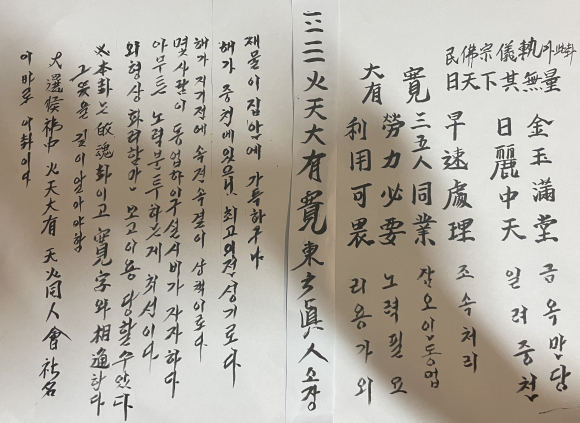 民佛宗儀執外此卦
日天下其無量
金玉滿堂 금옥만당
日麗中天 일려중천
早速處理 조속처리
寬 三五人同業 삼오인동업
勞力必要 노력필요
大有 利用可畏 리용가외
火天大有 寬 東 眞人 소장
재물이 집안에 가득하구나
해가 중천에 있으니 최고의 전성기로다
해가 지기전에 속전속결이 상책이로다
몇사람이 동업하야 구설시비가 자자하다
아무튼 노력분투하는게 최선이다
외형상 화려할가 보고 이용 당할수있다
※本卦는 歸魂卦이고 寬字와 相通하다
그 뜻을 깊이 알아야함
大選候補中 火天大有 天火同人 會社名
이 바로 이 卦이다